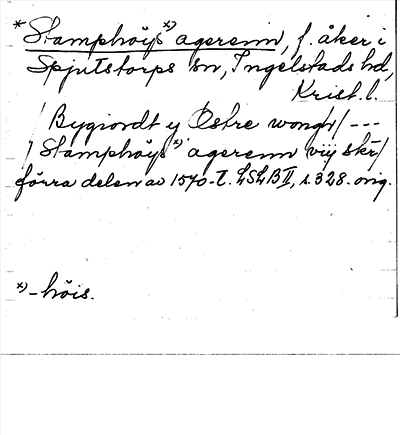 * Stamphöys x) agerenn, f. åker i
Spjutstorps sn, Ingelstads hd,
Krist. l.
/ Bygiordt y Østre wongh/ ---
/ Stamphöys x) agerenn viij skr/
förra delen av 1570-t. LSLB II, s. 328. orig.
x) -höis.